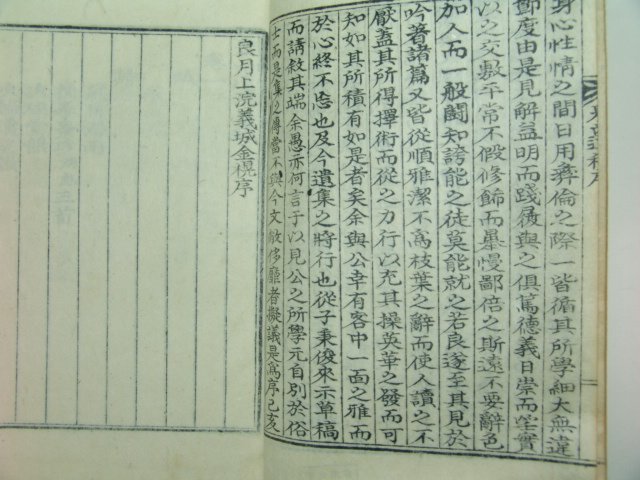 身心性情之間日用彛倫之際一皆循其所學細大無違
節度由是見解益明而踐履與之俱篤德義日崇而
以之交敷平常不假修飾而暴慢鄙倍之斯遠不要辭色
加人而一般鬪知誇能之徒莫能就之若良遂至其見於
吟著諸篇又皆從順雅潔不爲枝葉之辭而使人讀之不
厭蓋其所得擇術而從之力行以充其操英華之發而可
知如其所積有如是者矣余與公幸有客中一面之雅而
於心終不忘也及今遺集之將行也從子秉俊來示草稿
而請敘其端余愚亦何言于以見公之所學元自別於俗
士而是集之傳當不與今文 侈靡者擬議是爲序己亥
良月上浣義城金 序